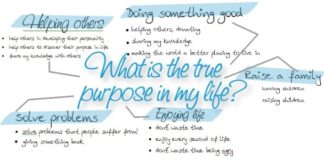 Helping others
• help others in developing their personality
• help others to discover their purpose in life
• share my knowledge with others
Doing something good
• helping others, donating
• sharing my knowledge
• making the world a better placing to live in
What is the true
purpose in my life?
Raise a family
• having children
• raising children
Solve problems
• solve problems that people suffer from!
• giving something back
Enjoying life
• don't waste time
• enjoy every second of life
• don't waste time being angry